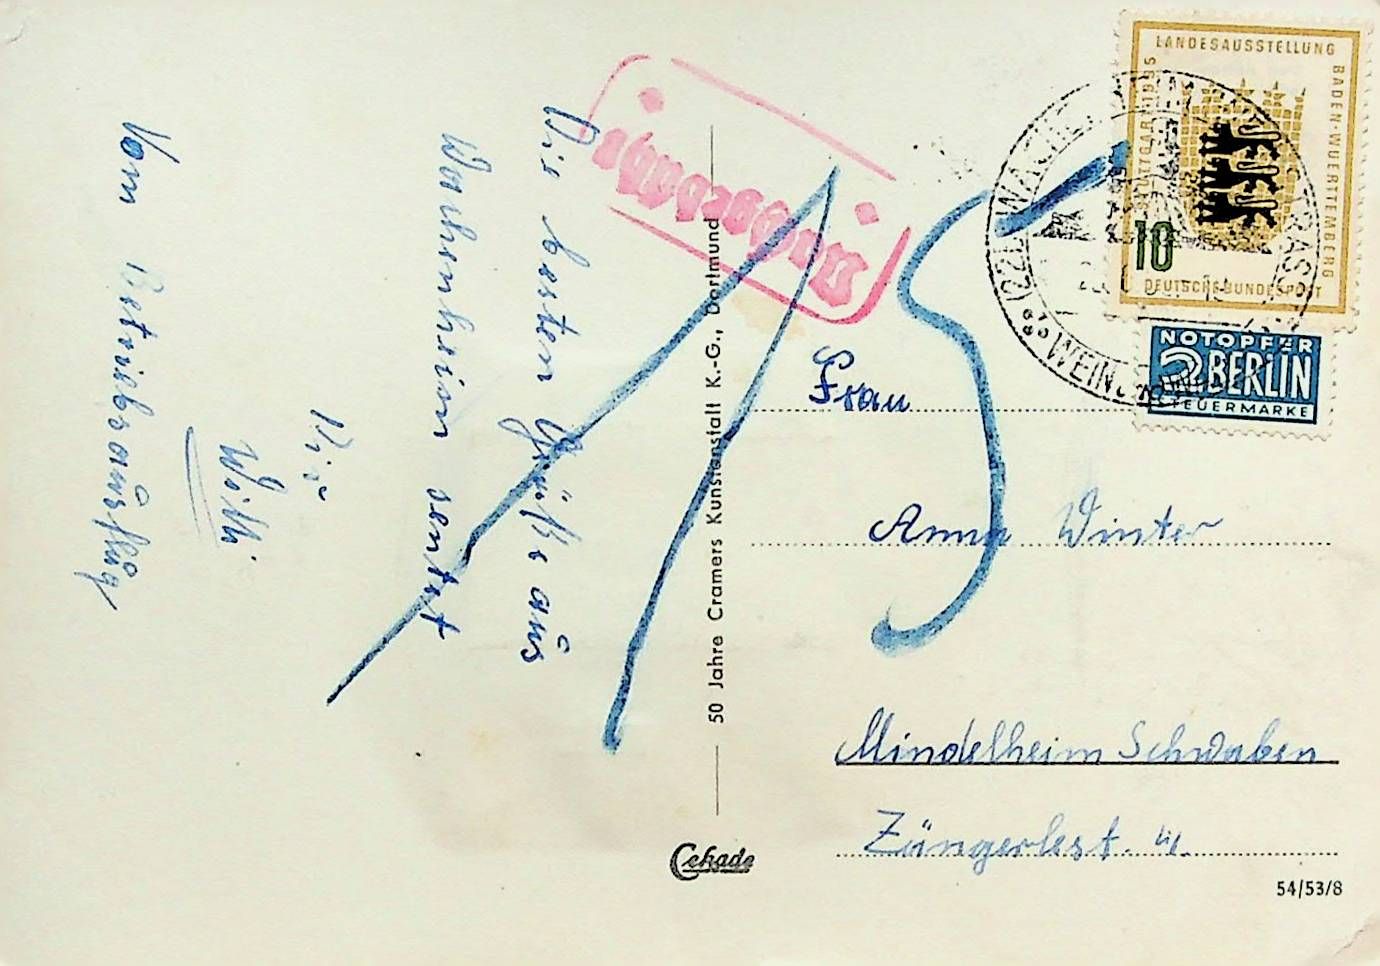 Die besten Grüße aus
Wachenheim sentet
Dir
Willi
Vom Betriebsausflug
Nachgebühr
15
50 Jahre Cramers Kunstanstalt K.-G., Dortmund
Cekade
LANDESAUSSTELLUNG
BADEN-WUERTTEMBERG
STUTTGART 1955
10
DEUTSCHE BUNDESPOST
NOTOPFER
2 BERLIN
STEUERMARKE
(22b) WACHENHEIM
WEINSTRASSE
Frau
Anna Winter
Mindelheim Schwaben
Züngerlest.
54/53/8